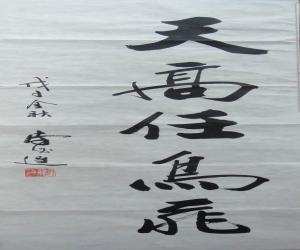 天高任鳥飛
戊子金秋